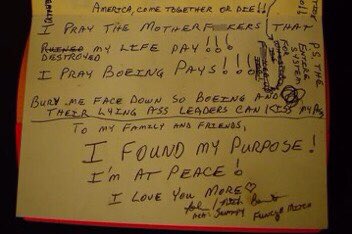 AMERICA, COME TOGETHER OR DIE!!
I PRAY THE MOTHERF KERS THAT
RUINED MY LIFE PAY!!!
DESTROYED
I PRAY BOEING PAYS!!!
BURY ME FACE DOWN SO BOEING AND
THEIR LYING ASS LEADERS CAN KISS MY ASS
TO MY FAMILY AND FRIENDS,
I FOUND MY PURPOSE!
I'M AT PEACE!
I LOVE YOU MORE
AKA: SWAMPY
P.S. THE
ENTIRE
SYSTEM
FOR